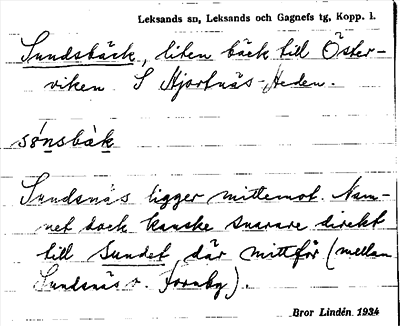 Leksands sn, Leksands och Gagnefs tg, Kopp. l.
Sundsbäck, liten bäck till Öster-
viken. S Hjortnäs-Heden.
sö́nsbàk
Sundsnäs ligger mittemot. Nam-
net dock kanske snarare direkt
till Sundet där mittför (mellan
Sundsnäs o. Fornby).
Bror Lindén 1934